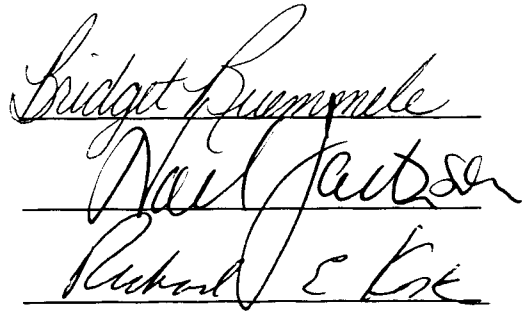 Bridget Ruemmele
Noel Jackson
Richard E